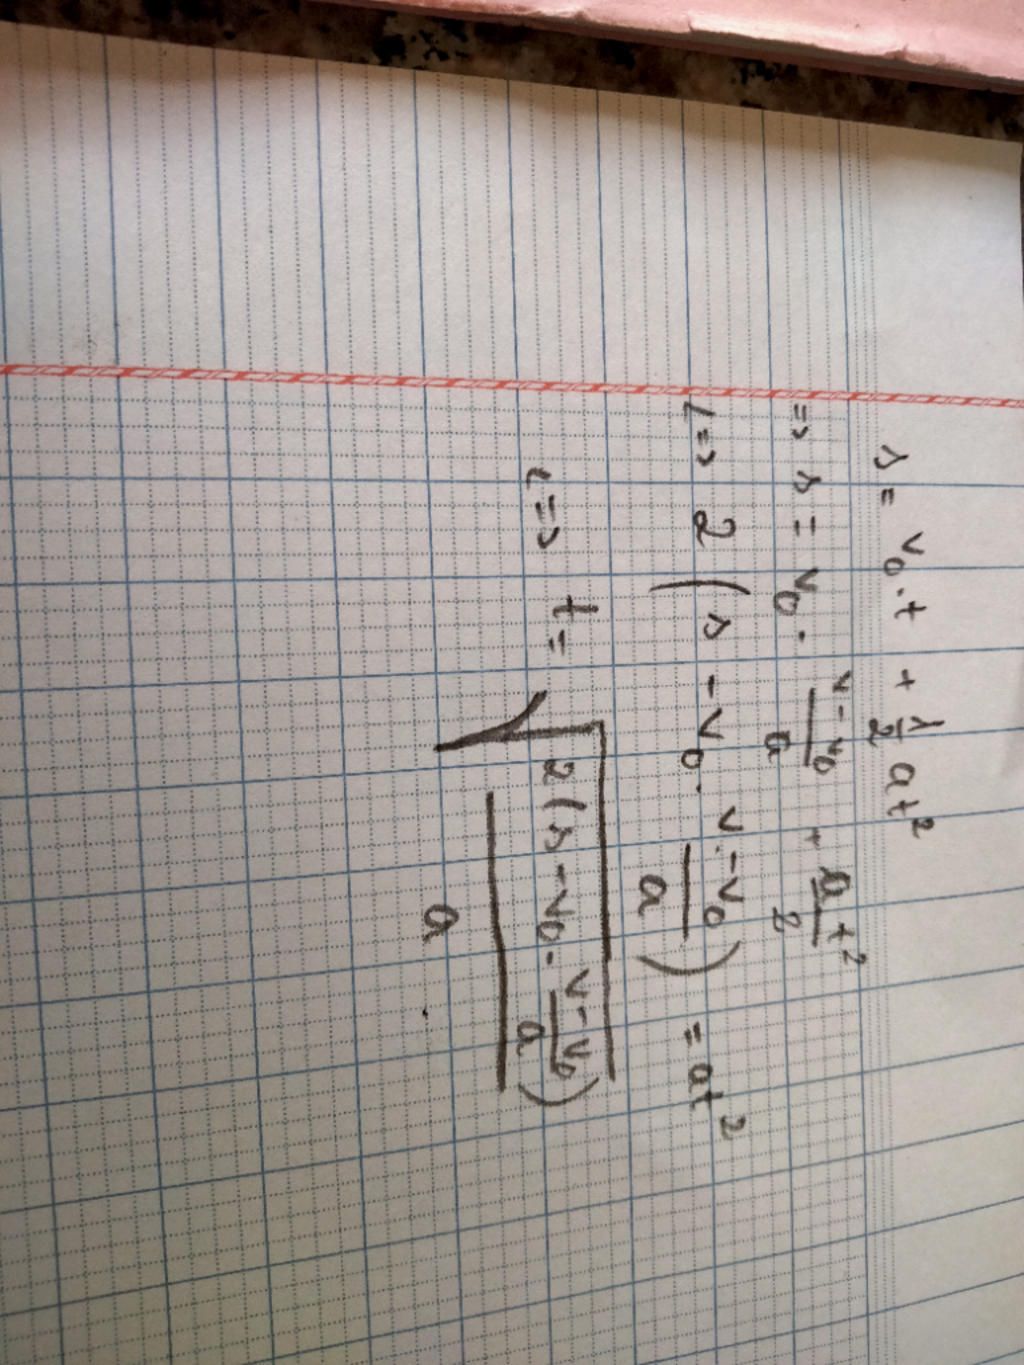 s = v₀.t + 1/2 at²
=> s = v₀ . (v - v₀)/a + at²/2
<=> 2 (s - v₀ . (v - v₀)/a) = at²
<=> t = √(2(s - v₀ . (v - v₀)/a)/a)